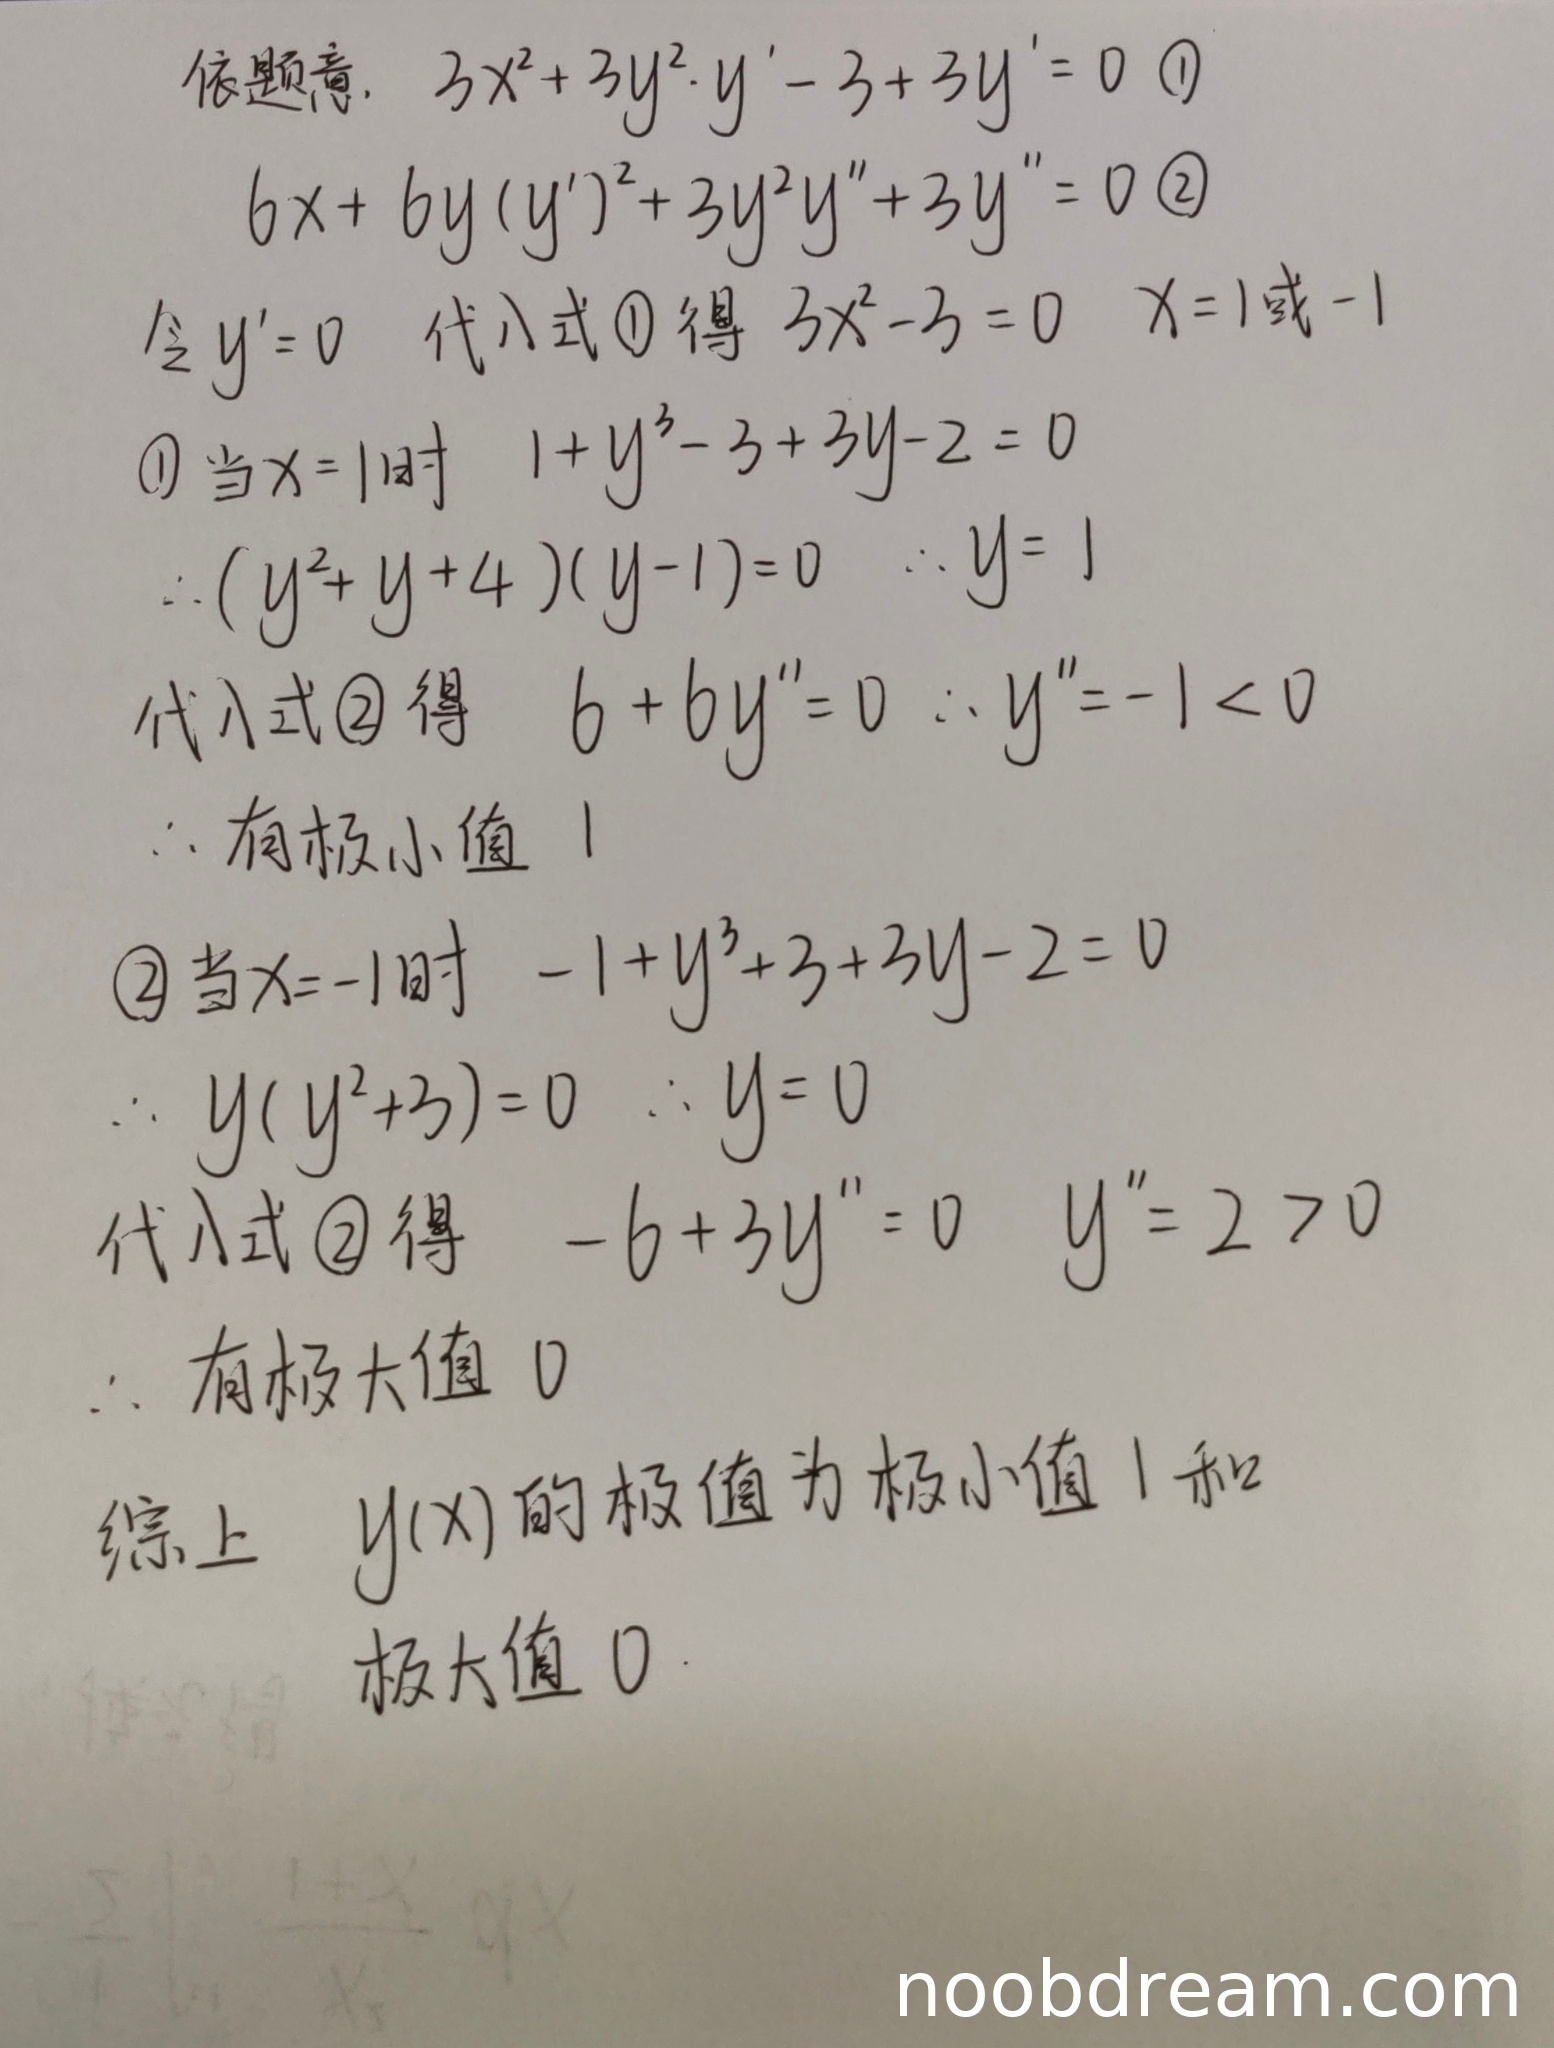 依题意. 3x²+3y²·y'-3+3y'=0 ①
6x+6y(y')²+3y²y''+3y''=0 ②
令y'=0 代入式①得 3x²-3=0 x=1或-1
①当x=1时 1+y³-3+3y-2=0
∴(y²+y+4)(y-1)=0 ∴y=1
代入式②得 6+6y''=0 ∴y''=-1<0
∴有极小值 1
②当x=-1时 -1+y³+3+3y-2=0
∴ y(y²+3)=0 ∴y=0
代入式②得 -6+3y''=0 y''=2>0
∴ 有极大值 0
综上 y(x)的极值为极小值1和
极大值0.
noobdream.com